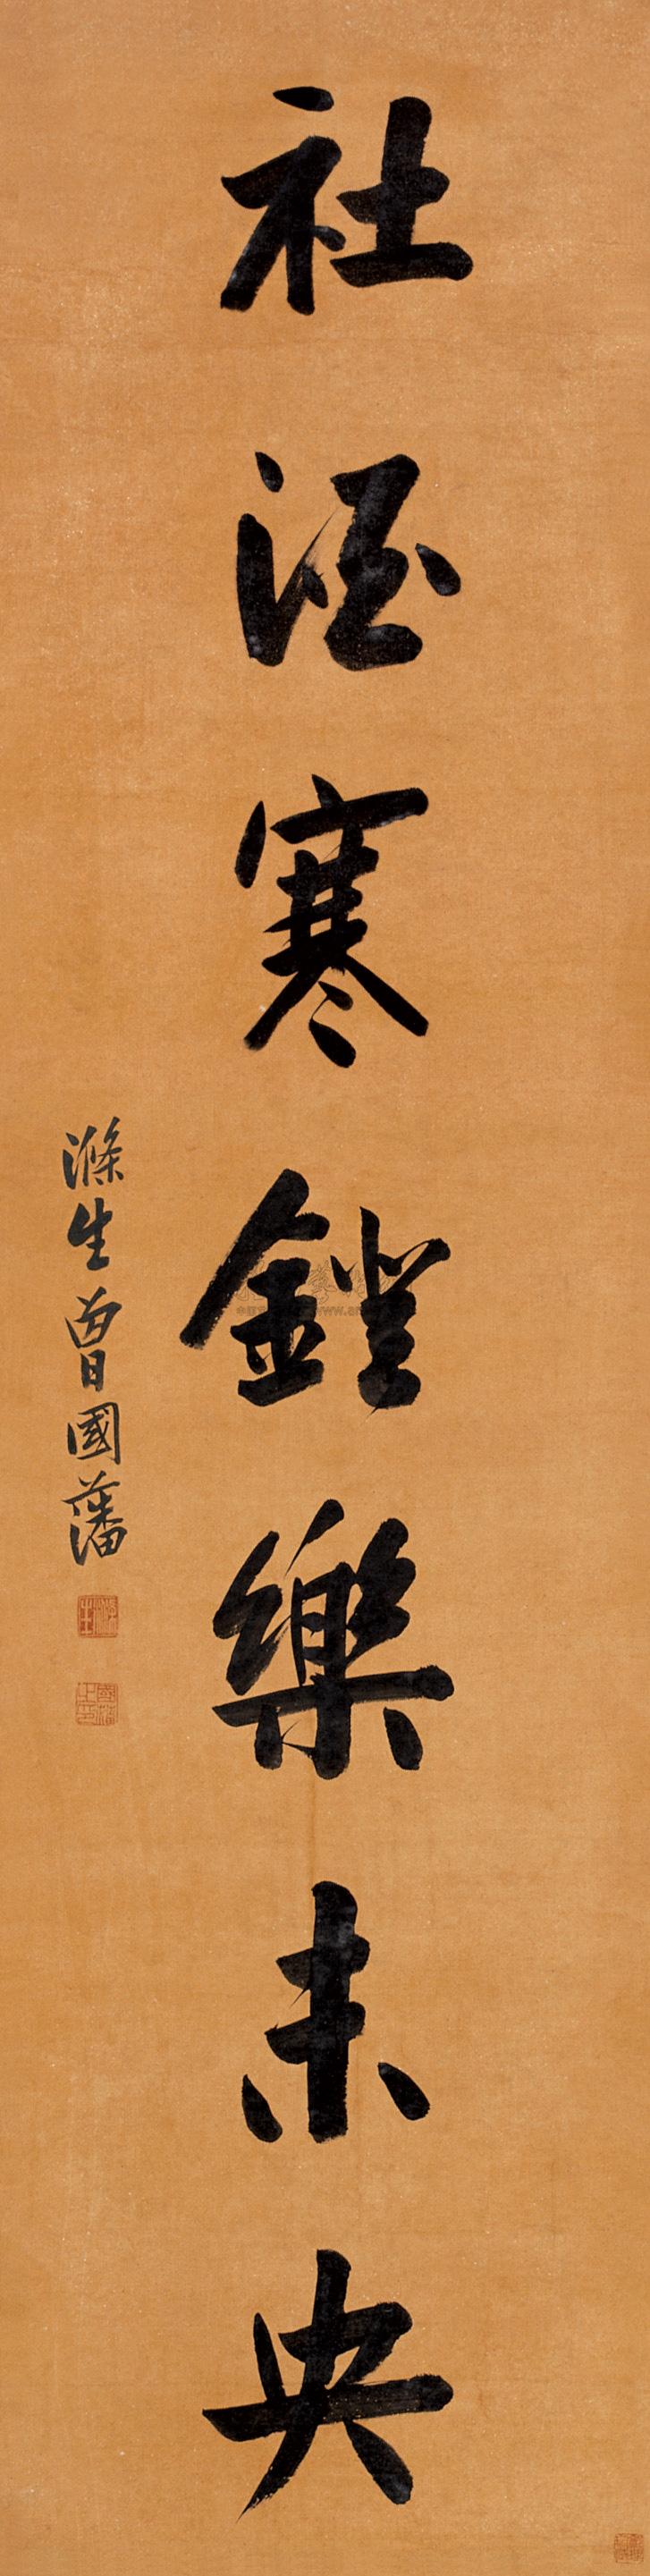 社酒寒鐙樂未央
滌生曾國藩
滌生